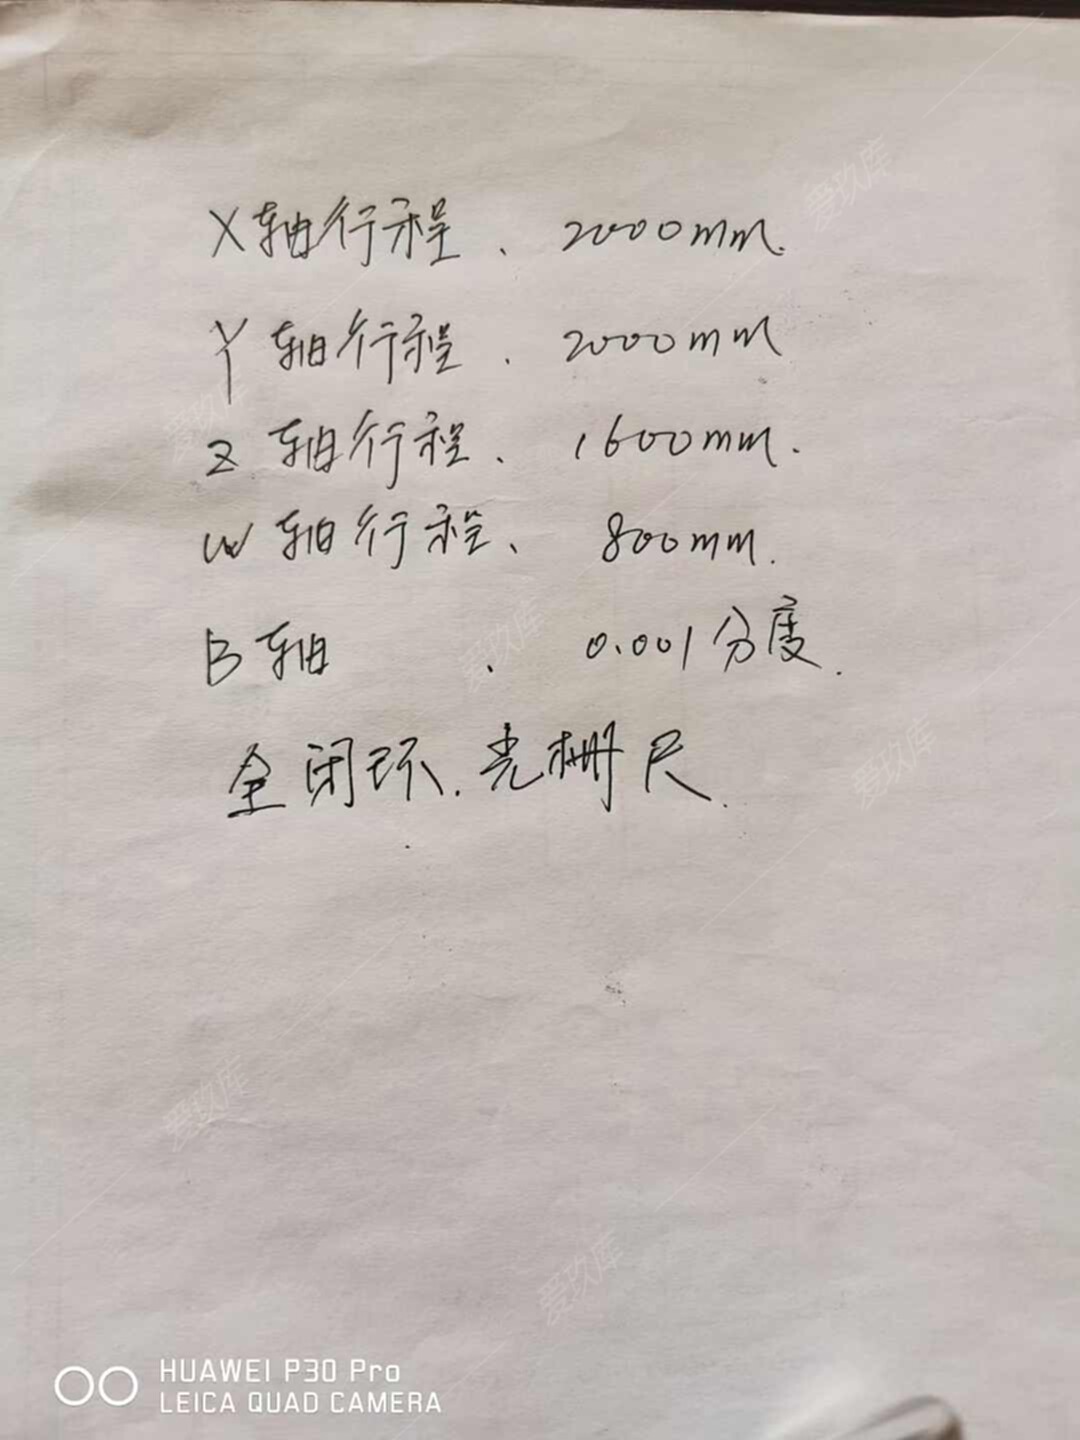 X轴行程、2000mm.
Y轴行程、2000mm
Z轴行程、1600mm.
W轴行程、800mm.
B轴、0.001分度.
全闭环.光栅尺.
爱玖库
爱玖库
爱玖库
爱玖库
爱玖库
爱玖库
HUAWEI P30 Pro
LEICA QUAD CAMERA